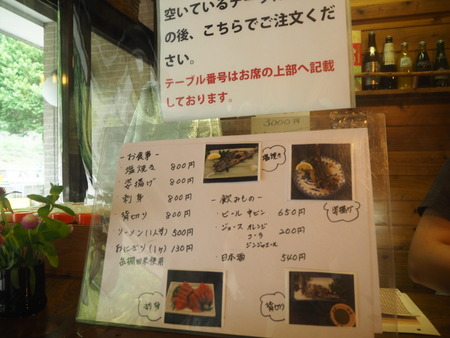 空いているテーブル
の後、こちらでご注文くだ
さい。
テーブル番号はお席の上部へ記載
しております。
3000円
-お食事-
塩焼き 800円
姿揚げ 800円
刺身 800円
背切り 800円
ソーメン(1人分) 500円
おにぎり(1ヶ) 130円
-飲みもの-
ビール 中ビン 650円
ジュース オレンジ 200円
コーラ
ジンジャエール
日本酒 540円
塩焼き
姿揚げ
刺身
背切り